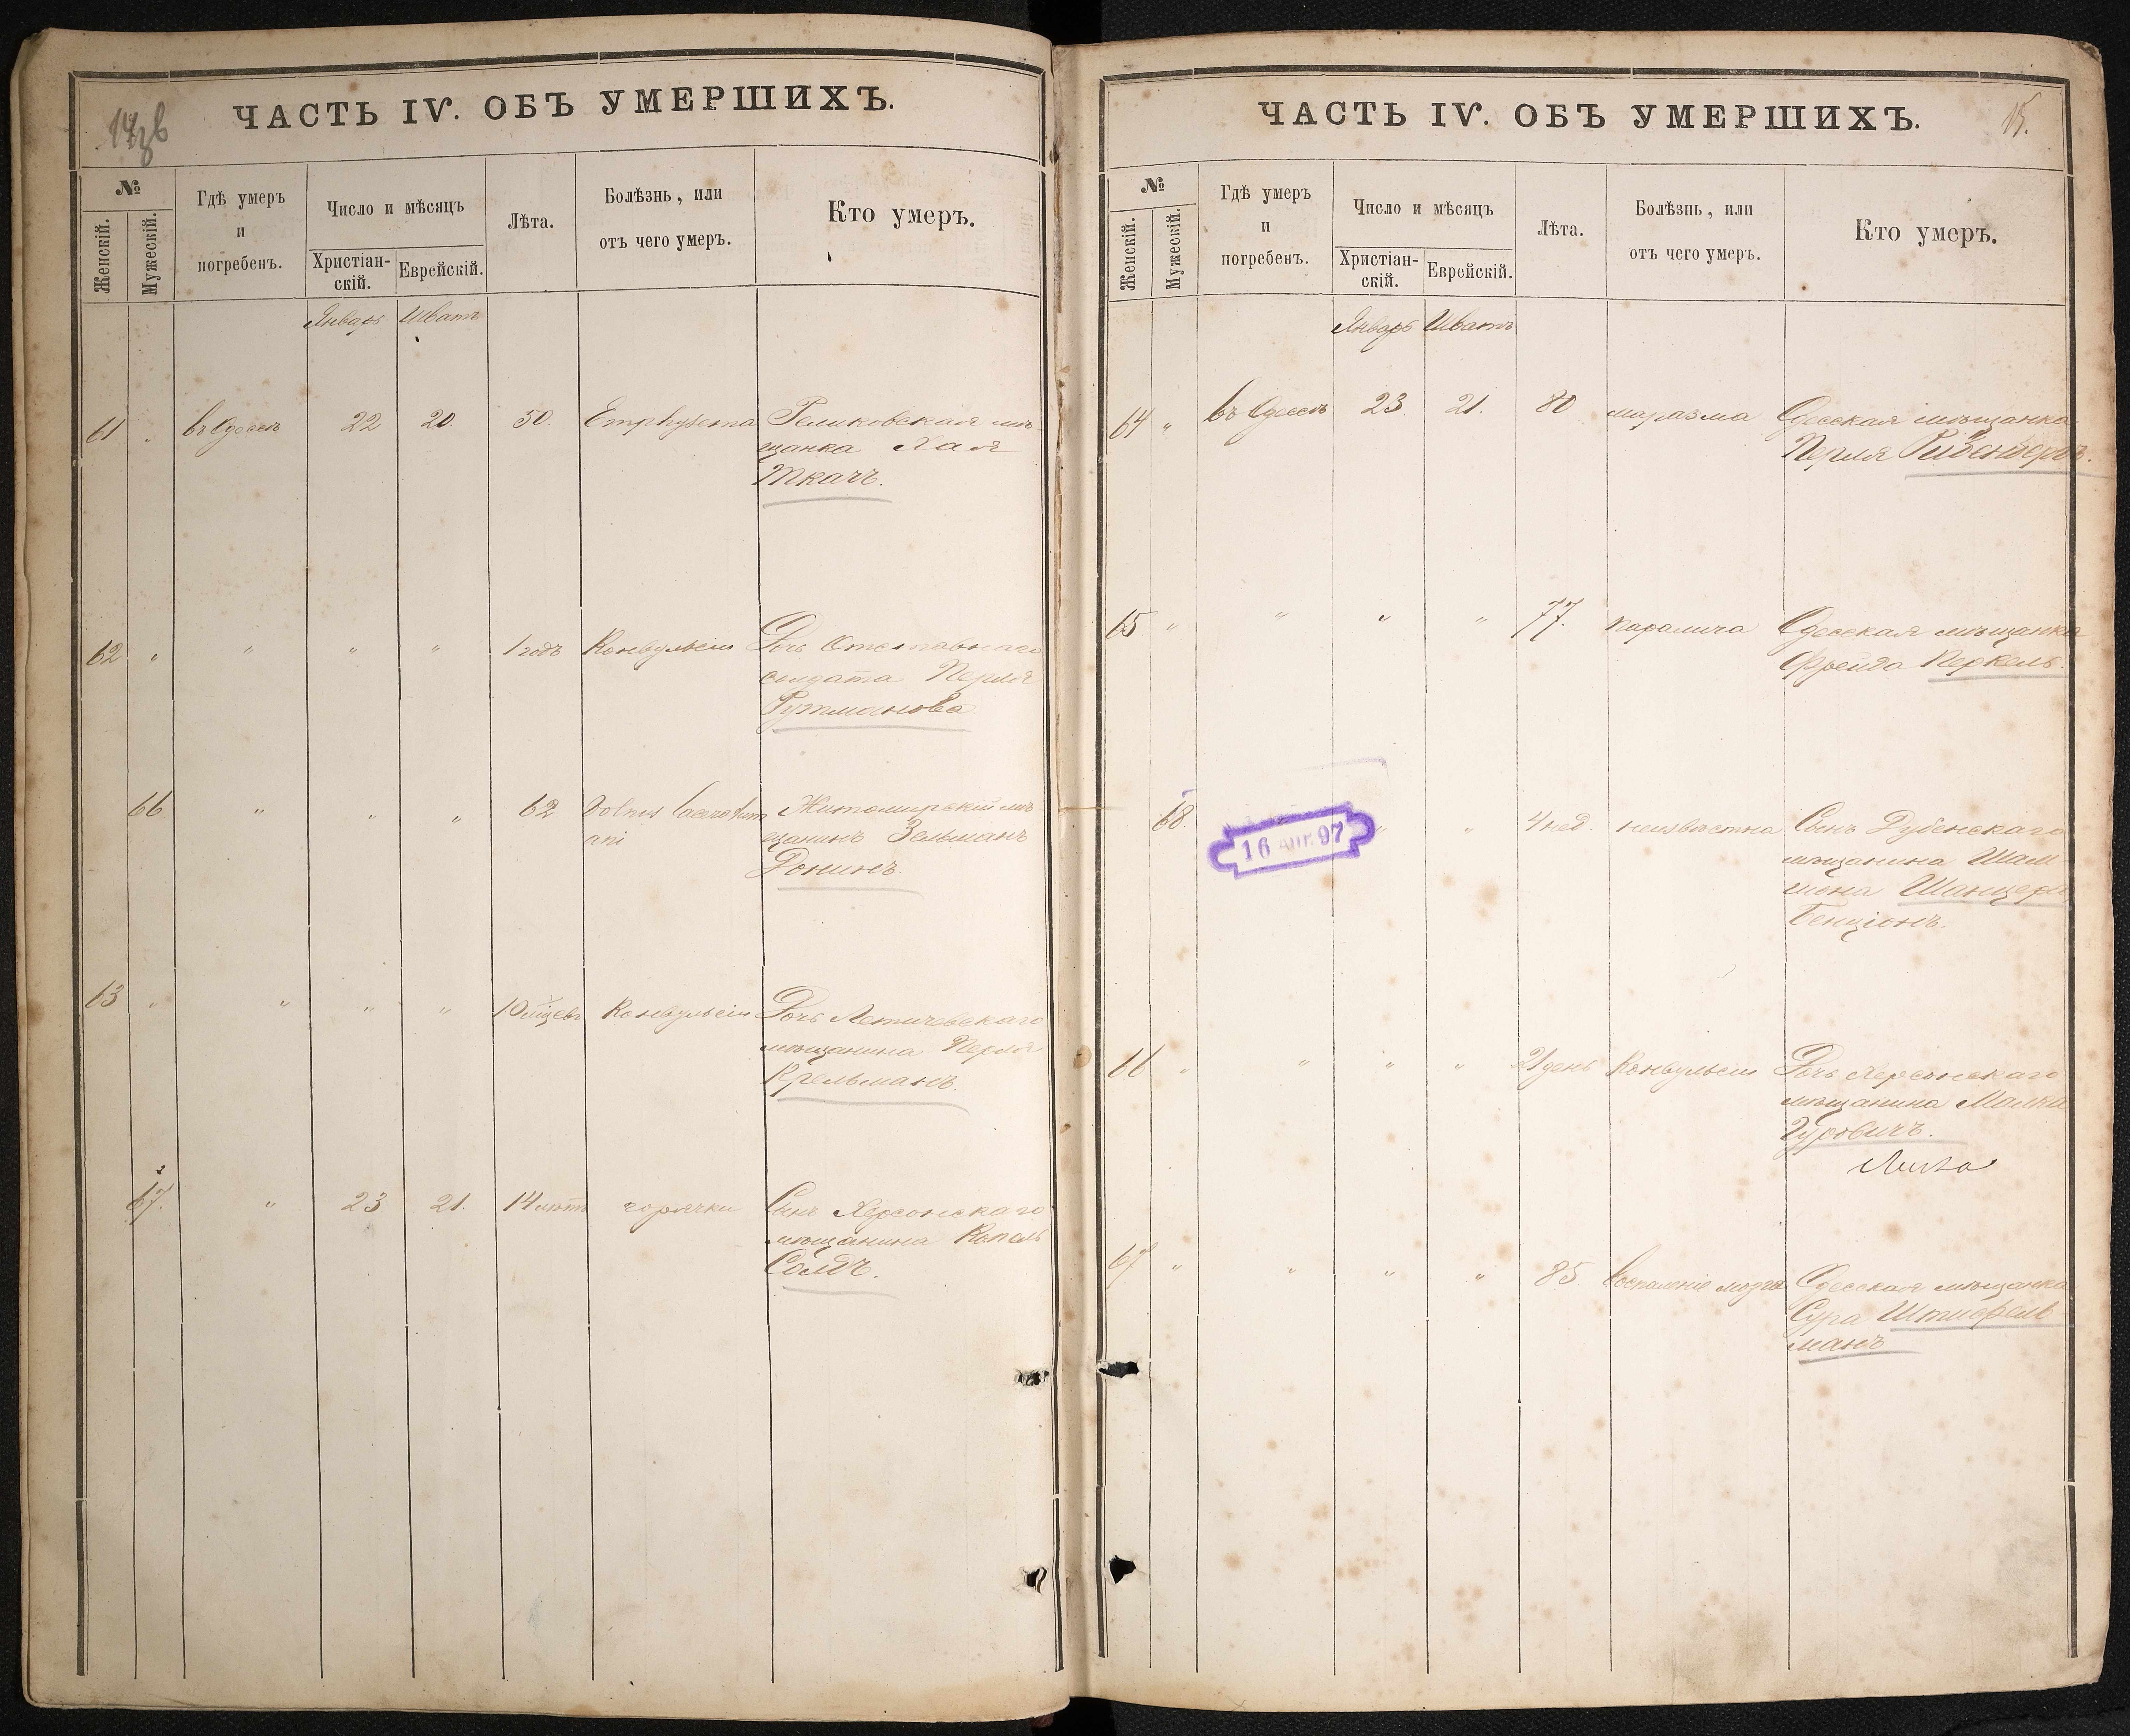 ЧАСТЬ IV. ОБЪ УМЕРШИХЪ.
№
Женскій.
Мужескій.
Гдѣ умеръ
и
погребенъ.
Число и мѣсяцъ
Христіан-
скій.
Еврейскій.
Лѣта.
Болѣзнь, или
отъ чего умеръ.
Кто умеръ.
Январь Шватъ
61 " въ Одессѣ 22 20. 50. Emphysema мѣ-
щанка Хая
Ткачъ.
62 " " " " 1 годъ Конвульсіи Дочь Отставнаго
солдата Перля
Гутманова
66 " " " 62 laceratum Житомирскій мѣ-
ani щанинъ Зельманъ
Донинъ.
63 " " " " 10 мѣсяцевъ Конвульсіи Дочь Летичевскаго
мѣщанина Перля
Крельманъ.
67. " 23 21. 14 лѣтъ горячки Сынъ Херсонскаго
мѣщанина Копель
ЧАСТЬ IV. ОБЪ УМЕРШИХЪ.
15.
№
Женскій.
Мужескій.
Гдѣ умеръ
и
погребенъ.
Число и мѣсяцъ
Христіан-
скій.
Еврейскій.
Лѣта.
Болѣзнь, или
отъ чего умеръ.
Кто умеръ.
Январь Шватъ
64 " въ Одессѣ 23. 21. 80 маразма Одесская мѣщанка
Перля
65 " " " " 77. паралича Одесская мѣщанка
Фрейда Перкель.
68. " " 4 нед. неизвѣстна Сынъ Дубенскаго
16 АПР. 97
мѣщанина Шам
шона Шанцеръ
Бенціонъ.
66 " " " " 21 день Конвульсіи Дочь Херсонскаго
мѣщанина Малка
Гуровичъ.
67 " " " " 85. воспаленіе мозга Одесская мѣщанка
Сура Штифель
манъ